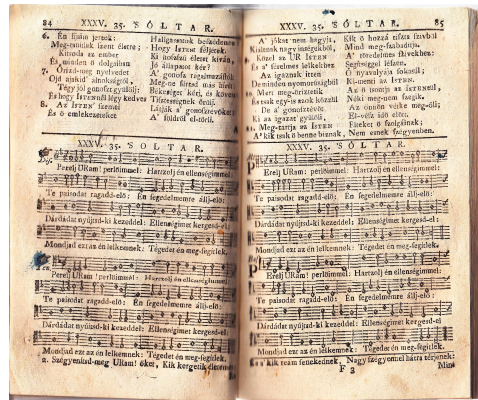 84 XXXV. 35. 'SÓLTAR.
6. Én fiáim jertek:
Meg-tanúlak szent életre;
Kitsoda az ember
És minden ő dolgaiban
7. Őrizd-meg nyelvedet
Ójd ajkid' álnokságtól,
Tégy jól gonosz gyűlölj:
És hogy ISTENtől légy kedves
8. Az ISTEN' szemei
És ő emlékezeteket
Hallgassatok beszédemre
Hogy ISTENT féljetek.
Ki hoszszú életet kiván,
Jó állapatot kér?
A' gonosz
Meg-ne
Békeséget kérj, és kövess
Tisztességnek örülj.
A' földről el-törli.
XXXV. 35. 'SÓLTAR.
Perelj URam! perlőimmel: Hartzolj én ellenségimmel:
Te paisodat ragadd-elő: Én segedelmemre állj-elő:
Dárdádat nyújtsd-ki kezeddel: Ellenségimet kergesd-el:
Mondjad ezt az én lelkemnek: Tégedet én meg-segitlek.
Perelj URam! perlőimmel: Hartzolj én ellenségimmel:
Te paisodat ragadd-elő: Én segedelmemre állj-elő:
Dárdádat nyújtsd-ki kezeddel: Ellenségimet kergesd-el:
Mondjad ezt az én lelkemnek: Tégedet én meg-segitlek.
2. Szégyenitsd-meg URam! őket, Kik kergetik
XXXV. 35. 'SÓLTAR. 85
A' jókat nem hagyja,
Kiáltnak nagy inségekből,
9. Közel az UR ISTEN
És a' sérelmes lelkekhez
Az igaznak itten
De minden nyomoruságból
10. Mert meg-őriztetik
És tsak egy-is azok közzűl
De a' gonosz vétkez
Ki az igazat gyűlöli,
11. Meg-tartja az ISTEN
A' kik tsak ő benne bíznak,
Kik ő hozzá tiszta szivből
Mind meg-szabadúlja.
A' töredelmes szivekhez:
Segitséggel
Ő nyavalyája sokasúl;
Ki-menti az ISTEN.
Az ő tsontja az ISTENtől,
Néki meg-nem szegik.
Az önnön vétke meg-öli;
El-vész idő előtt.
Életek ő szolgáinak;
Nem esnek szégyenben.
XXXV. 35. 'SÓLTAR.
Perelj URam! perlőimmel: Hartzolj én ellenségimmel:
Te paisodat ragadd-elő: Én segedelmemre állj-elő:
Dárdádat nyújtsd-ki kezeddel: Ellenségimet kergesd-el:
Mondjad ezt az én lelkemnek: Tégedet én meg-segitlek.
Perelj URam! perlőimmel: Hartzolj én ellenségimmel:
Te paisodat ragadd-elő: Én segedelmemre állj-elő:
Dárdádat nyújtsd-ki kezeddel: Ellenségimet kergesd-el
Mondjad ezt az én lelkemnek: Tégedet én meg-segitlek.
kik reám fenekednek, Nagy szégyennel hátra térjenek:
F 3 Mint